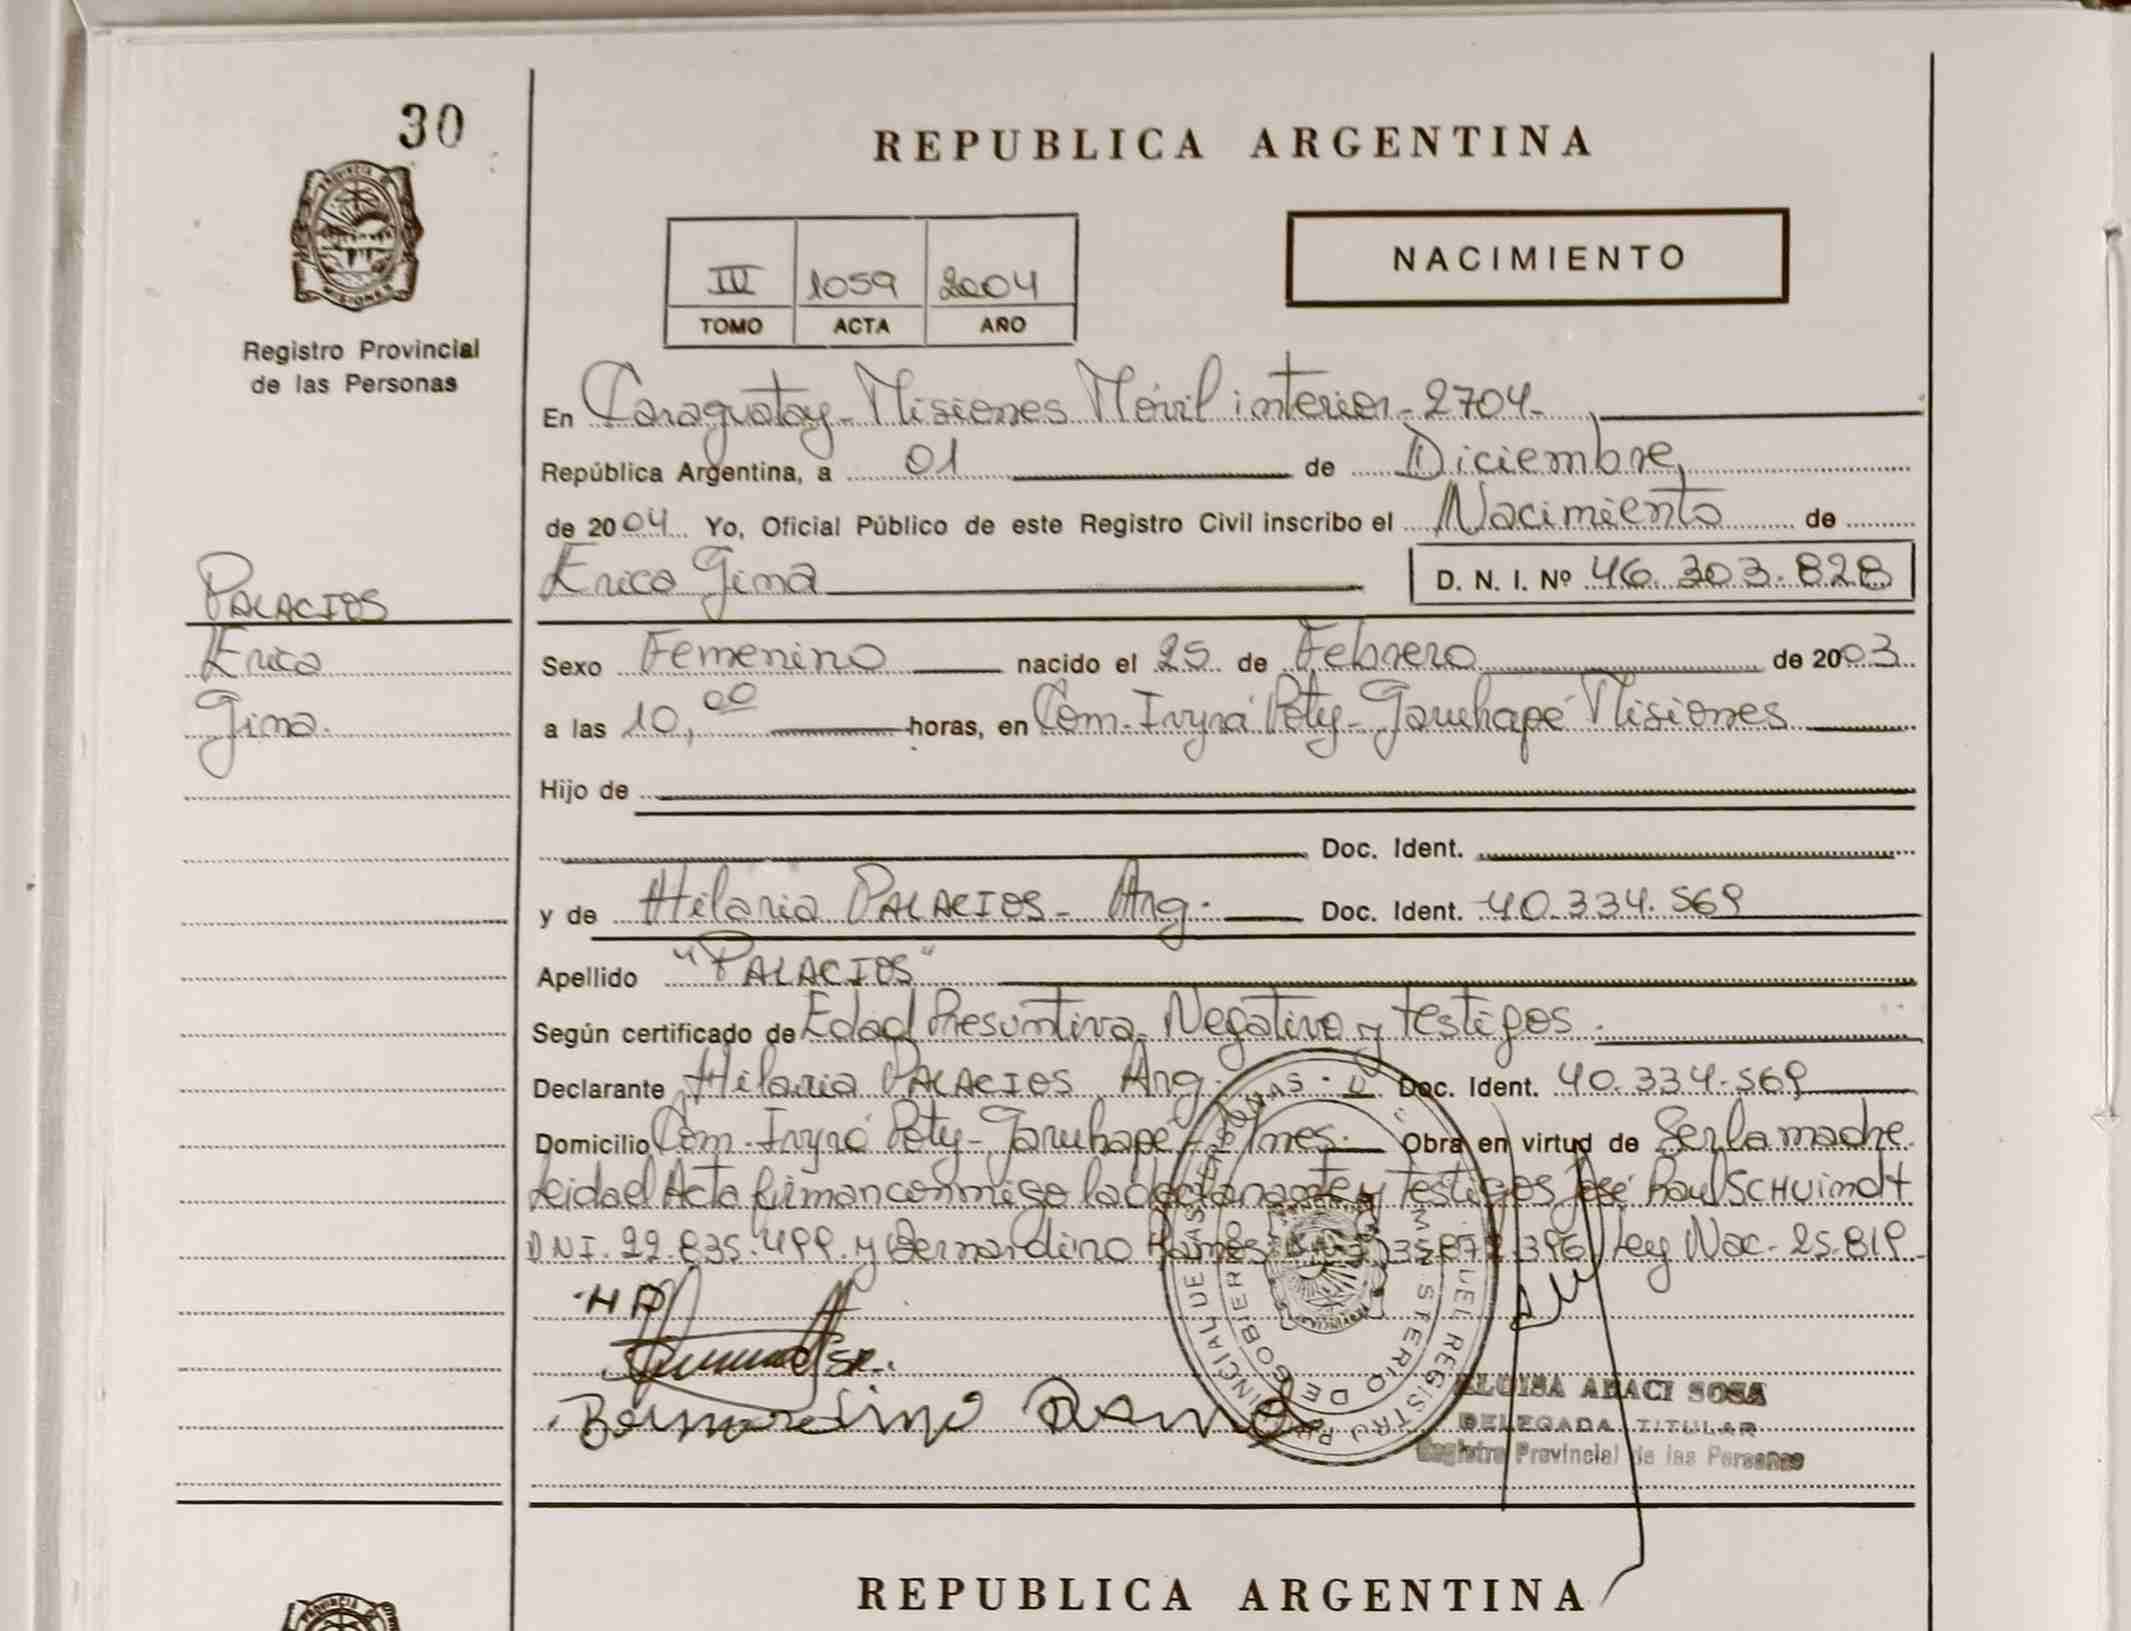 30
REPUBLICA ARGENTINA
NACIMIENTO
III 1059 2004
TOMO ACTA AÑO
Registro Provincial
de las Personas
En Caraguatay - Misiones Móvil interior - 2704 -
República Argentina, a 01 de Diciembre,
de 2004 Yo, Oficial Público de este Registro Civil inscribo el Nacimiento de
Erica Gima D. N. I. Nº 46.303.828
PALACIOS
Erica
Gima.
Sexo Femenino nacido el 25 de Febrero de 2003
a las 10,00 horas, en Com. Ivyrá Poty - Garuhapé Misiones
Hijo de
Doc. Ident.
y de Hilaria PALACIOS - Arg. Doc. Ident. 40.334.569
Apellido "PALACIOS"
Según certificado de Edad Presuntiva, Negativo y testigos.
Declarante Hilaria PALACIOS Arg. Doc. Ident. 40.334.569
Domicilio Com. Ivyrá Poty - Garuhapé - Mnes. Obra en virtud de Ser la madre.
Leida el Acta firman conmigo la declarante y testigos José Raul SCHUimdt
DNI. 22.835.499. y Bernardino Ramos 35.872.396 Ley Nac. 25.819
HP
Bernardino Ramo
ELOISA ARACI SOSA
DELEGADA TITULAR
Registro Provincial de las Personas
REPUBLICA ARGENTINA